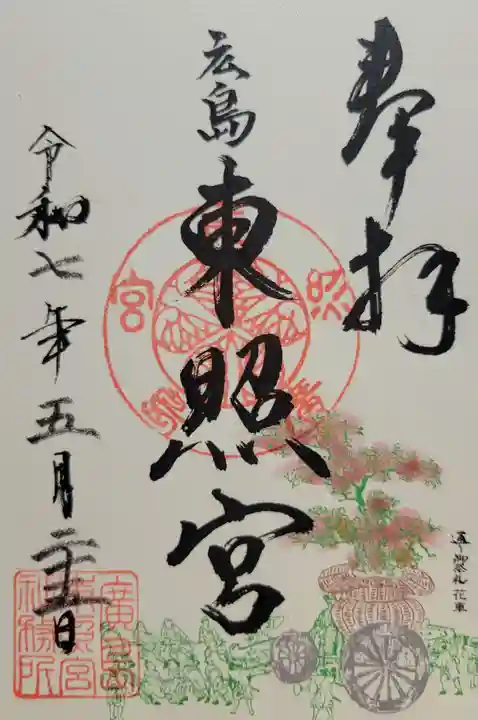 奉拝
広島
東照宮
令和七年五月二十五日
通り御祭礼 花車
廣島
東照宮
社務所